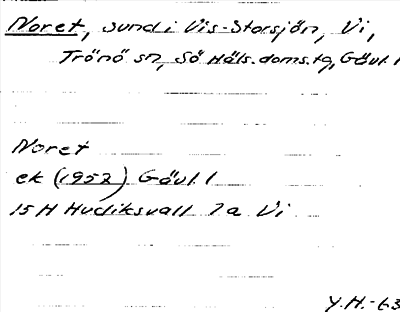 Noret, sund i Vis-Storsjön, Vi,
Trönö sn, Sö Häls. doms.tg, Gävl. l
Noret
ek (1952) Gävl. l
15 H Hudiksvall 7a Vi
Y.H.-63